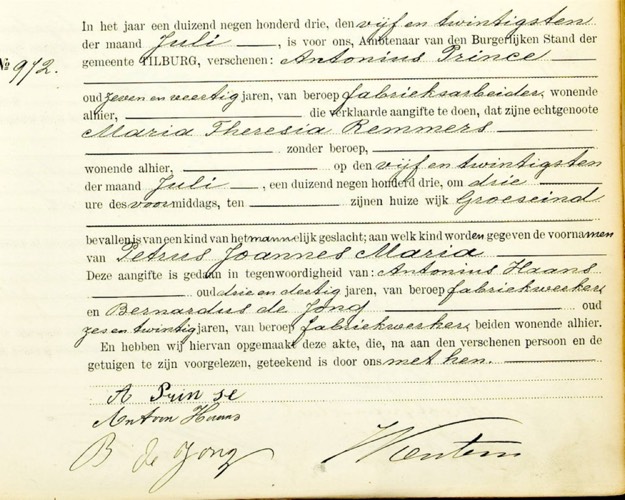 In het jaar een duizend negen honderd drie, den vijf en twintigsten
der maand Juli, is voor ons, Ambtenaar van den Burgerlijken Stand der
gemeente TILBURG, verschenen: Antonius Prince
No 972.
oud zeven en veertig jaren, van beroep fabrieksarbeider, wonende
alhier, die verklaarde aangifte te doen, dat zijne echtgenoote
Maria Theresia Remmers
zonder beroep,
wonende alhier, op den vijf en twintigsten
der maand Juli, een duizend negen honderd drie, om drie
ure des voormiddags, ten zijnen huize wijk Groeseind
bevallen is van een kind van het mannelijk geslacht; aan welk kind worden gegeven de voornamen
van Petrus Joannes Maria
Deze aangifte is gedaan in tegenwoordigheid van: Antonius Haans
oud drie en dertig jaren, van beroep fabriekwerker,
en Bernardus de Jong oud
zes en twintig jaren, van beroep fabriekwerker, beiden wonende alhier.
En hebben wij hiervan opgemaakt deze akte, die, na aan den verschenen persoon en de
getuigen te zijn voorgelezen, geteekend is door ons met hen.
A Prin se
Anton Haans
B de Jong